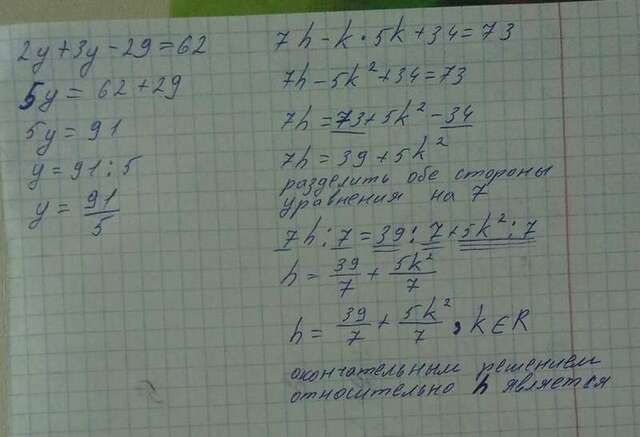 2y+3y-29=62
5y = 62+29
5y = 91
y = 91:5
y = 91/5
7h-k·5k+34=73
7h-5k²+34=73
7h=73+5k²-34
7h=39+5k²
разделить обе стороны
уравнения на 7
7h:7=39:7+5k²:7
h=39/7+5k²/7
h=39/7+5k²/7, k∈R
окончательным решением
относительно h является